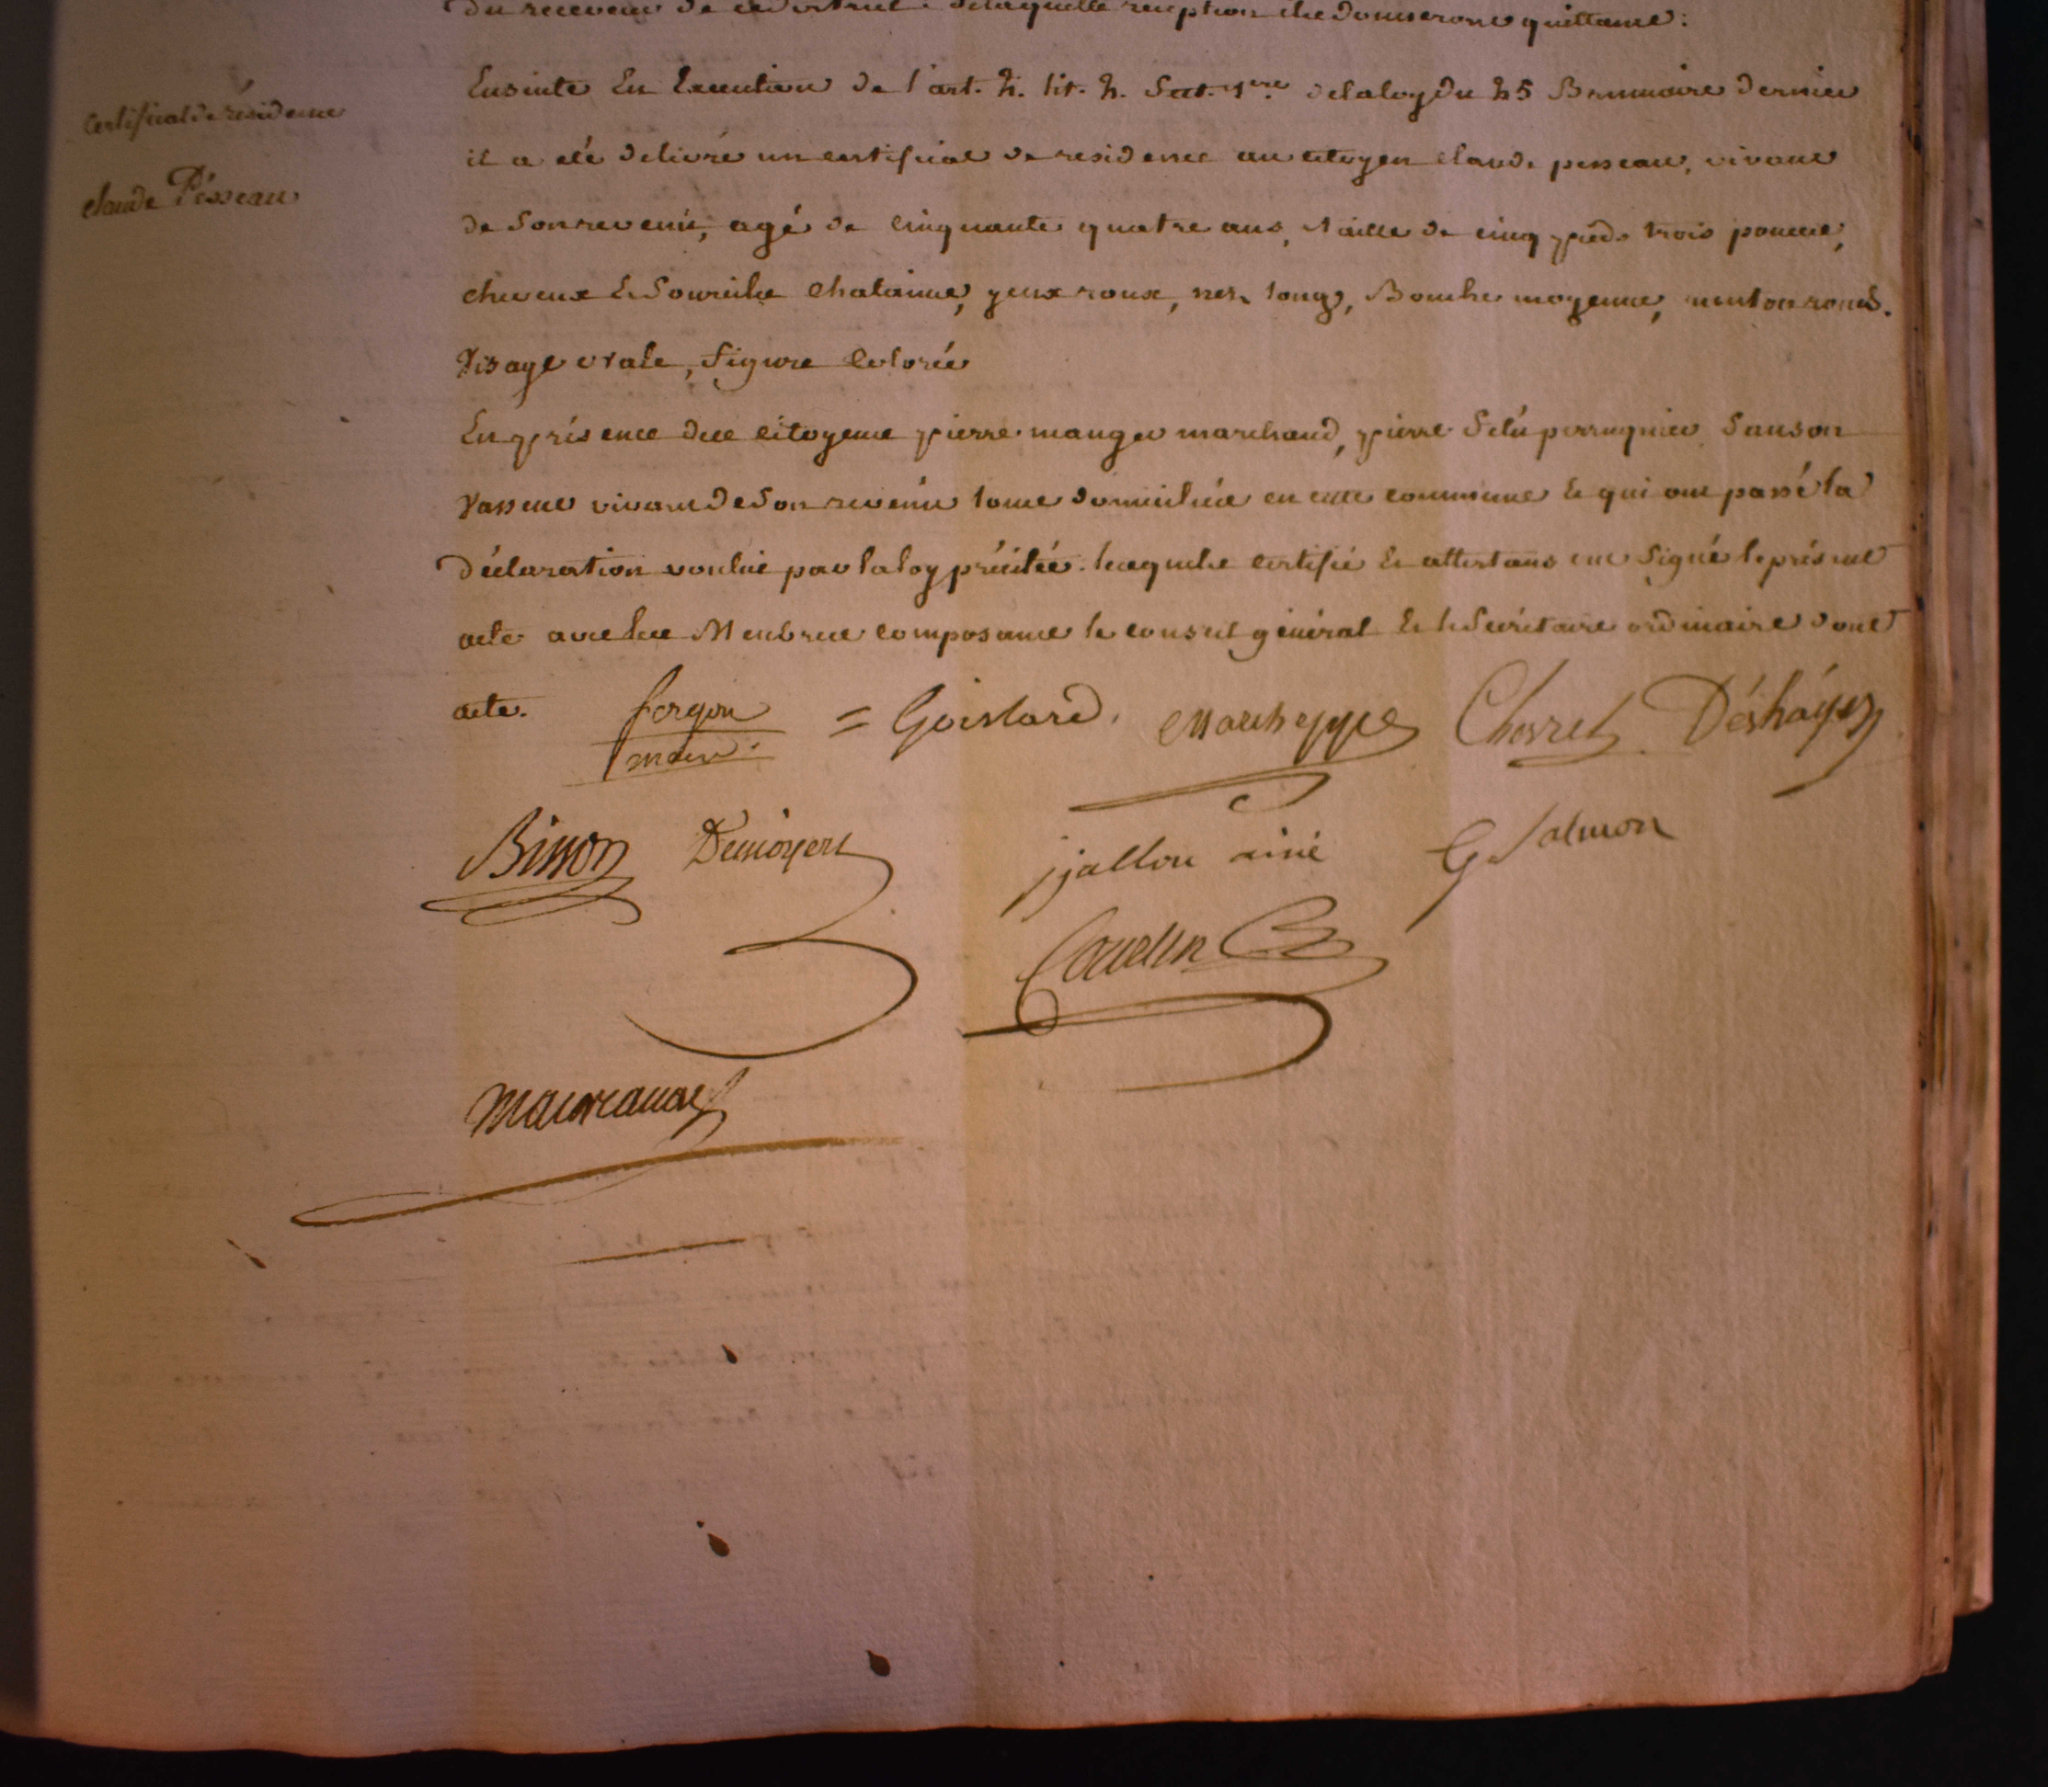 du receveur de ce district. de laquelle reception ils donneront quittance.
certificat de résidence
claude Pésseau
Ensuite En Execution de l'art. 2. tit. 2. Sect. 1ere de la loy du 25 Brumaire dernier
il a été delivré un certificat de residence au citoyen claude pesseau, vivant
de Son revenu, agé de Cinquante quatre ans, taille de cinq pieds trois pouces,
cheveux & Sourcils Chatains, yeux roux, nez long, Bouche moyenne, menton rond.
Visage ovale, figure Colorée
En présence des citoyens pierre mauger marchand, pierre perruquier Sanson
vivant de Son revenu tous domiciliés en cette commune & qui ont passé la
déclaration voulue par la loy précitée. lesquels certifié & attestans ont Signé le présent
acte avec les Membres composans le conseil général & le Secrétaire ordinaire dont
acte.
forgon = Goislard. Chevret Déshayes
maire.
Bisson Desnoyers jjallou ainé G Salmon